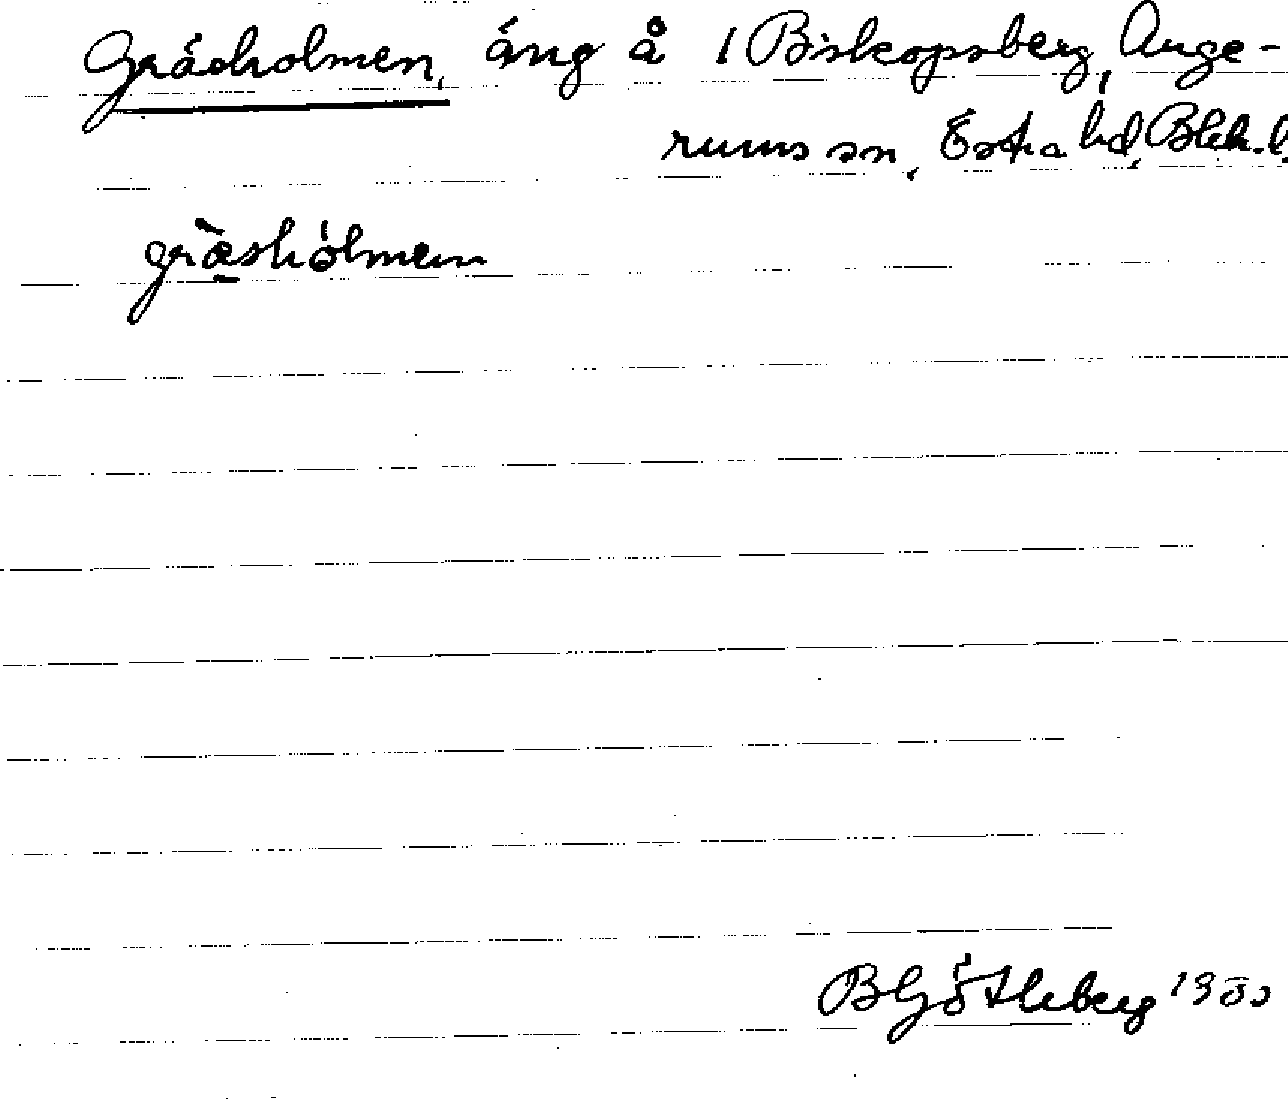 Gräsholmen, äng å 1 Biskopsberg, Ange-
rums sn, Östra hd, Blek. l.
gräshólmen
B Götleberg